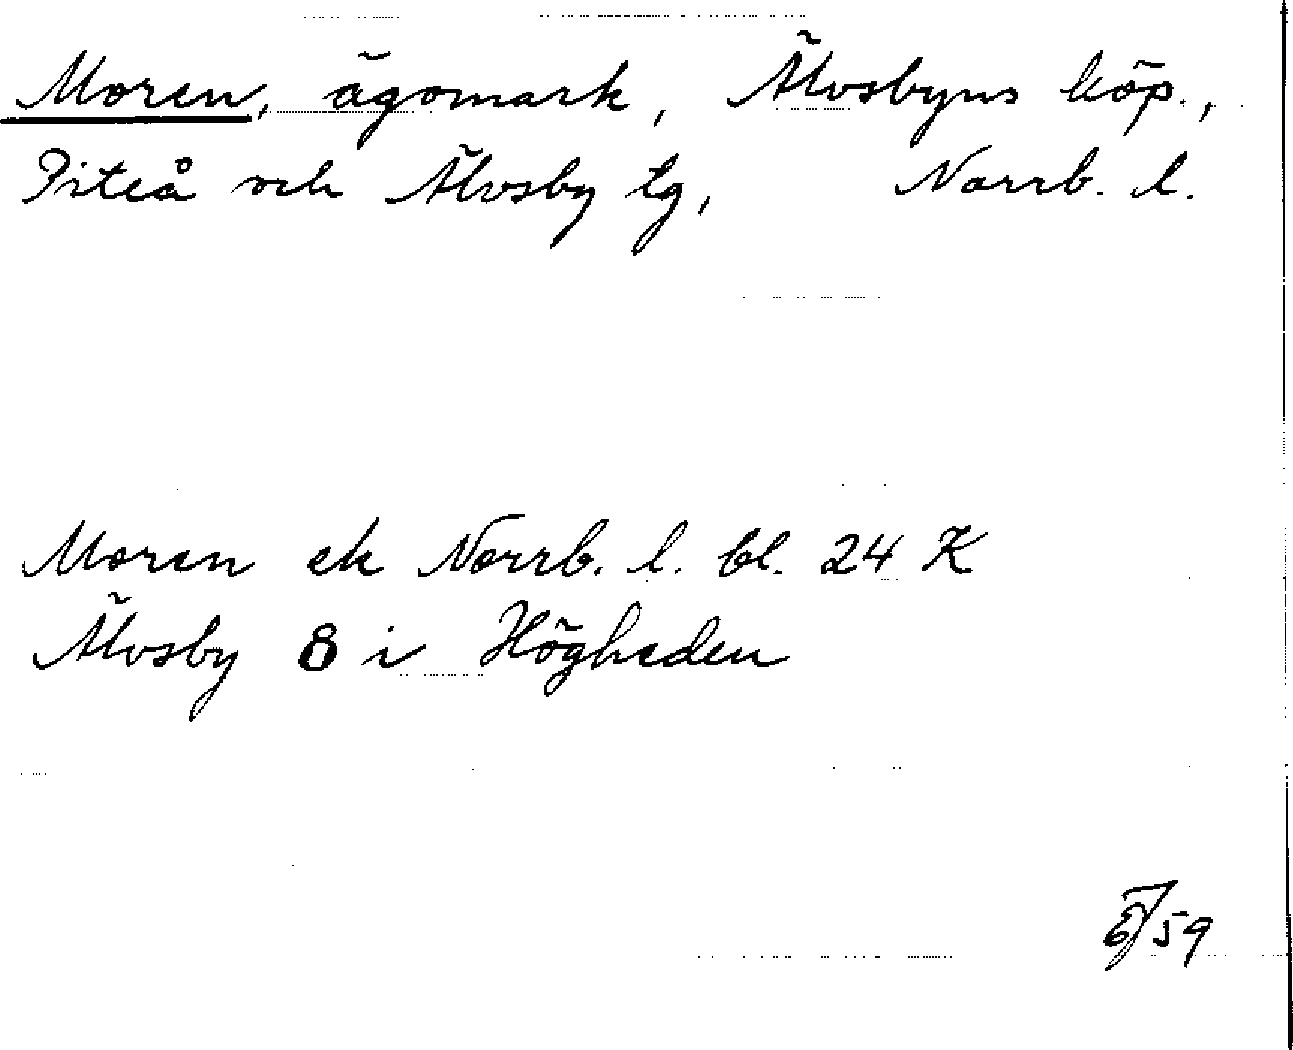 Moren, ägomark, Älvsbyns köp.,
Piteå och Älvsby tg, Norrb. l.
Moren ek Norrb. l. bl. 24 K
Älvsby 8 i Högheden
59